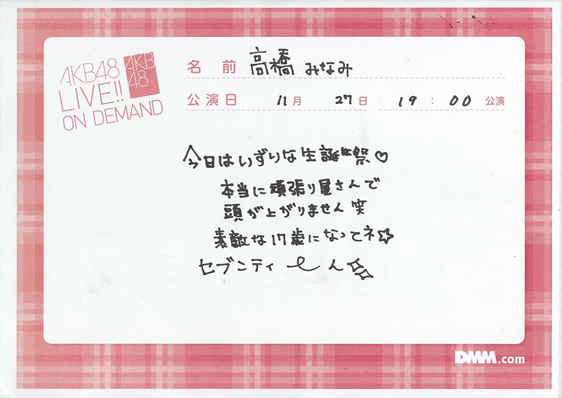 AKB48
LIVE!!
ON DEMAND
AKB
48
名前 高橋 みなみ
公演日 11月 27日 19:00 公演
今日はいずりな生誕祭♡
本当に頑張り屋さんで
頭が上がりません笑
素敵な17歳になってネ☆
セブンティ〜ん☆☆
DMM.com